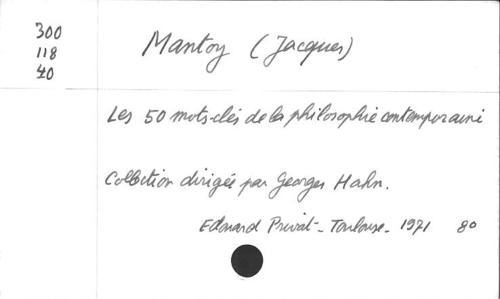 300
118
40
Mantoy (Jacques)
Les 50 mots-clés de la philosophie contemporaine
Collection dirigée par Georges Hahn.
Edouard Privat - Toulouse - 1971 80